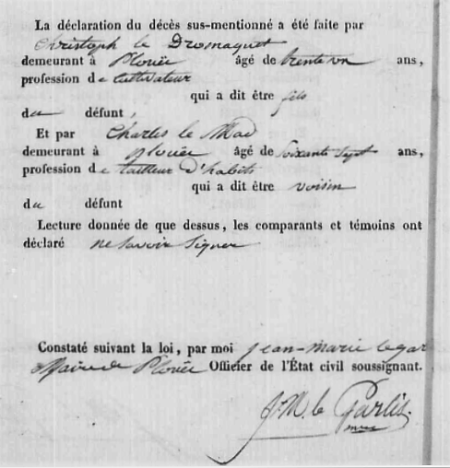 La déclaration du décès sus-mentionné a été faite par
Christoph le Dromaguet
demeurant à Plouëc âgé de trente un ans,
profession de cultivateur
qui a dit être fils
du défunt,
Et par Charles le
demeurant à Plouëc âgé de Soixante Sept ans,
profession de tailleur d'habits
qui a dit être voisin
du défunt
Lecture donnée de que dessus, les comparants et témoins ont
déclaré ne Savoir Signer
Constaté suivant la loi, par moi jean-marie
Maire de Plouëc Officier de l'État civil soussignant.
J. M. le